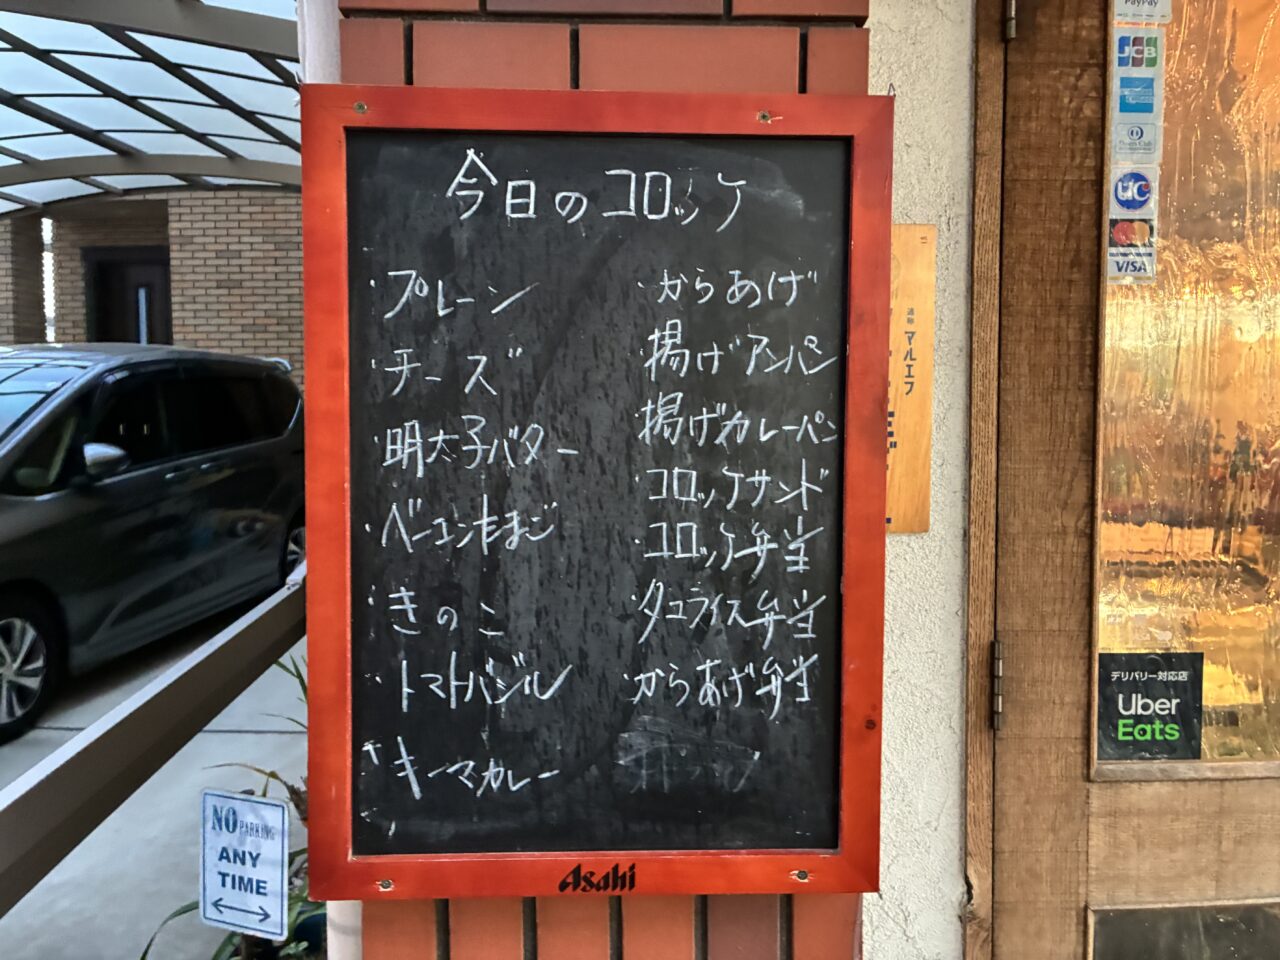 今日のコロッケ
・プレーン
・チーズ
・明太子バター
・ベーコンたまご
・きのこ
・トマトバジル
・キーマカレー
・からあげ
揚げアンパン
揚げカレーパン
コロッケサンド
・コロッケ弁当
・タコライス弁当
・からあげ弁当
Asahi
NO PARKING
ANY
TIME
通称 マルエフ
PayPay
JCB
AMERICAN EXPRESS
Diners Club
UC
VISA
デリバリー対応店
Uber
Eats